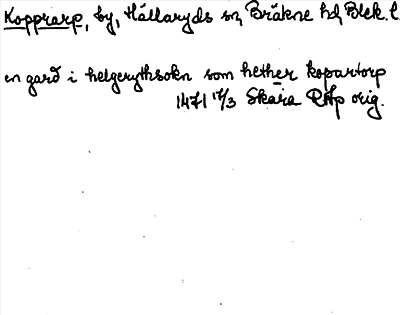 Kopprarp, by, Hällaryds sn, Bräkne hd, Blek. l.
en gard i helgerythsokn som hether kopartorp
1471 17/3 Skara RAp orig.